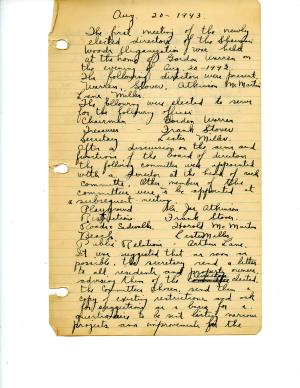 Aug. 20-1943.
The first meeting of the newly
elected directors of the
Woods Organization was held
at the home of Gordon Warren on
the evening of Aug. 20-1943.
The following directors were present
Warren, Stover, Atkinson, McMartin
Lane, Miller.
The following were elected to serve
for the following offices
Chairman Gordon Warren
Treasurer Frank Stover
Secretary Lester Miller
After a discussion on the aims and
functions of the board of directors
the following committees were appointed
with a director at the head of each
committee. Other members of the
committees were to be appointed at
a subsequent meeting.
Playground Joe Atkinson
Restrictions Frank Stover
Roads & Sidewalks Harold McMartin
Beach Lester Miller
Public Relations - Arthur Lane.
It was suggested that as soon as
possible the secretary send a letter
to all residents and property owners
advising them of the elected,
the Committees chosen, send them a
copy of existing restrictions and ask
for suggestions as a being for a
questionnaire to be sent listing various
projects and improvements for the